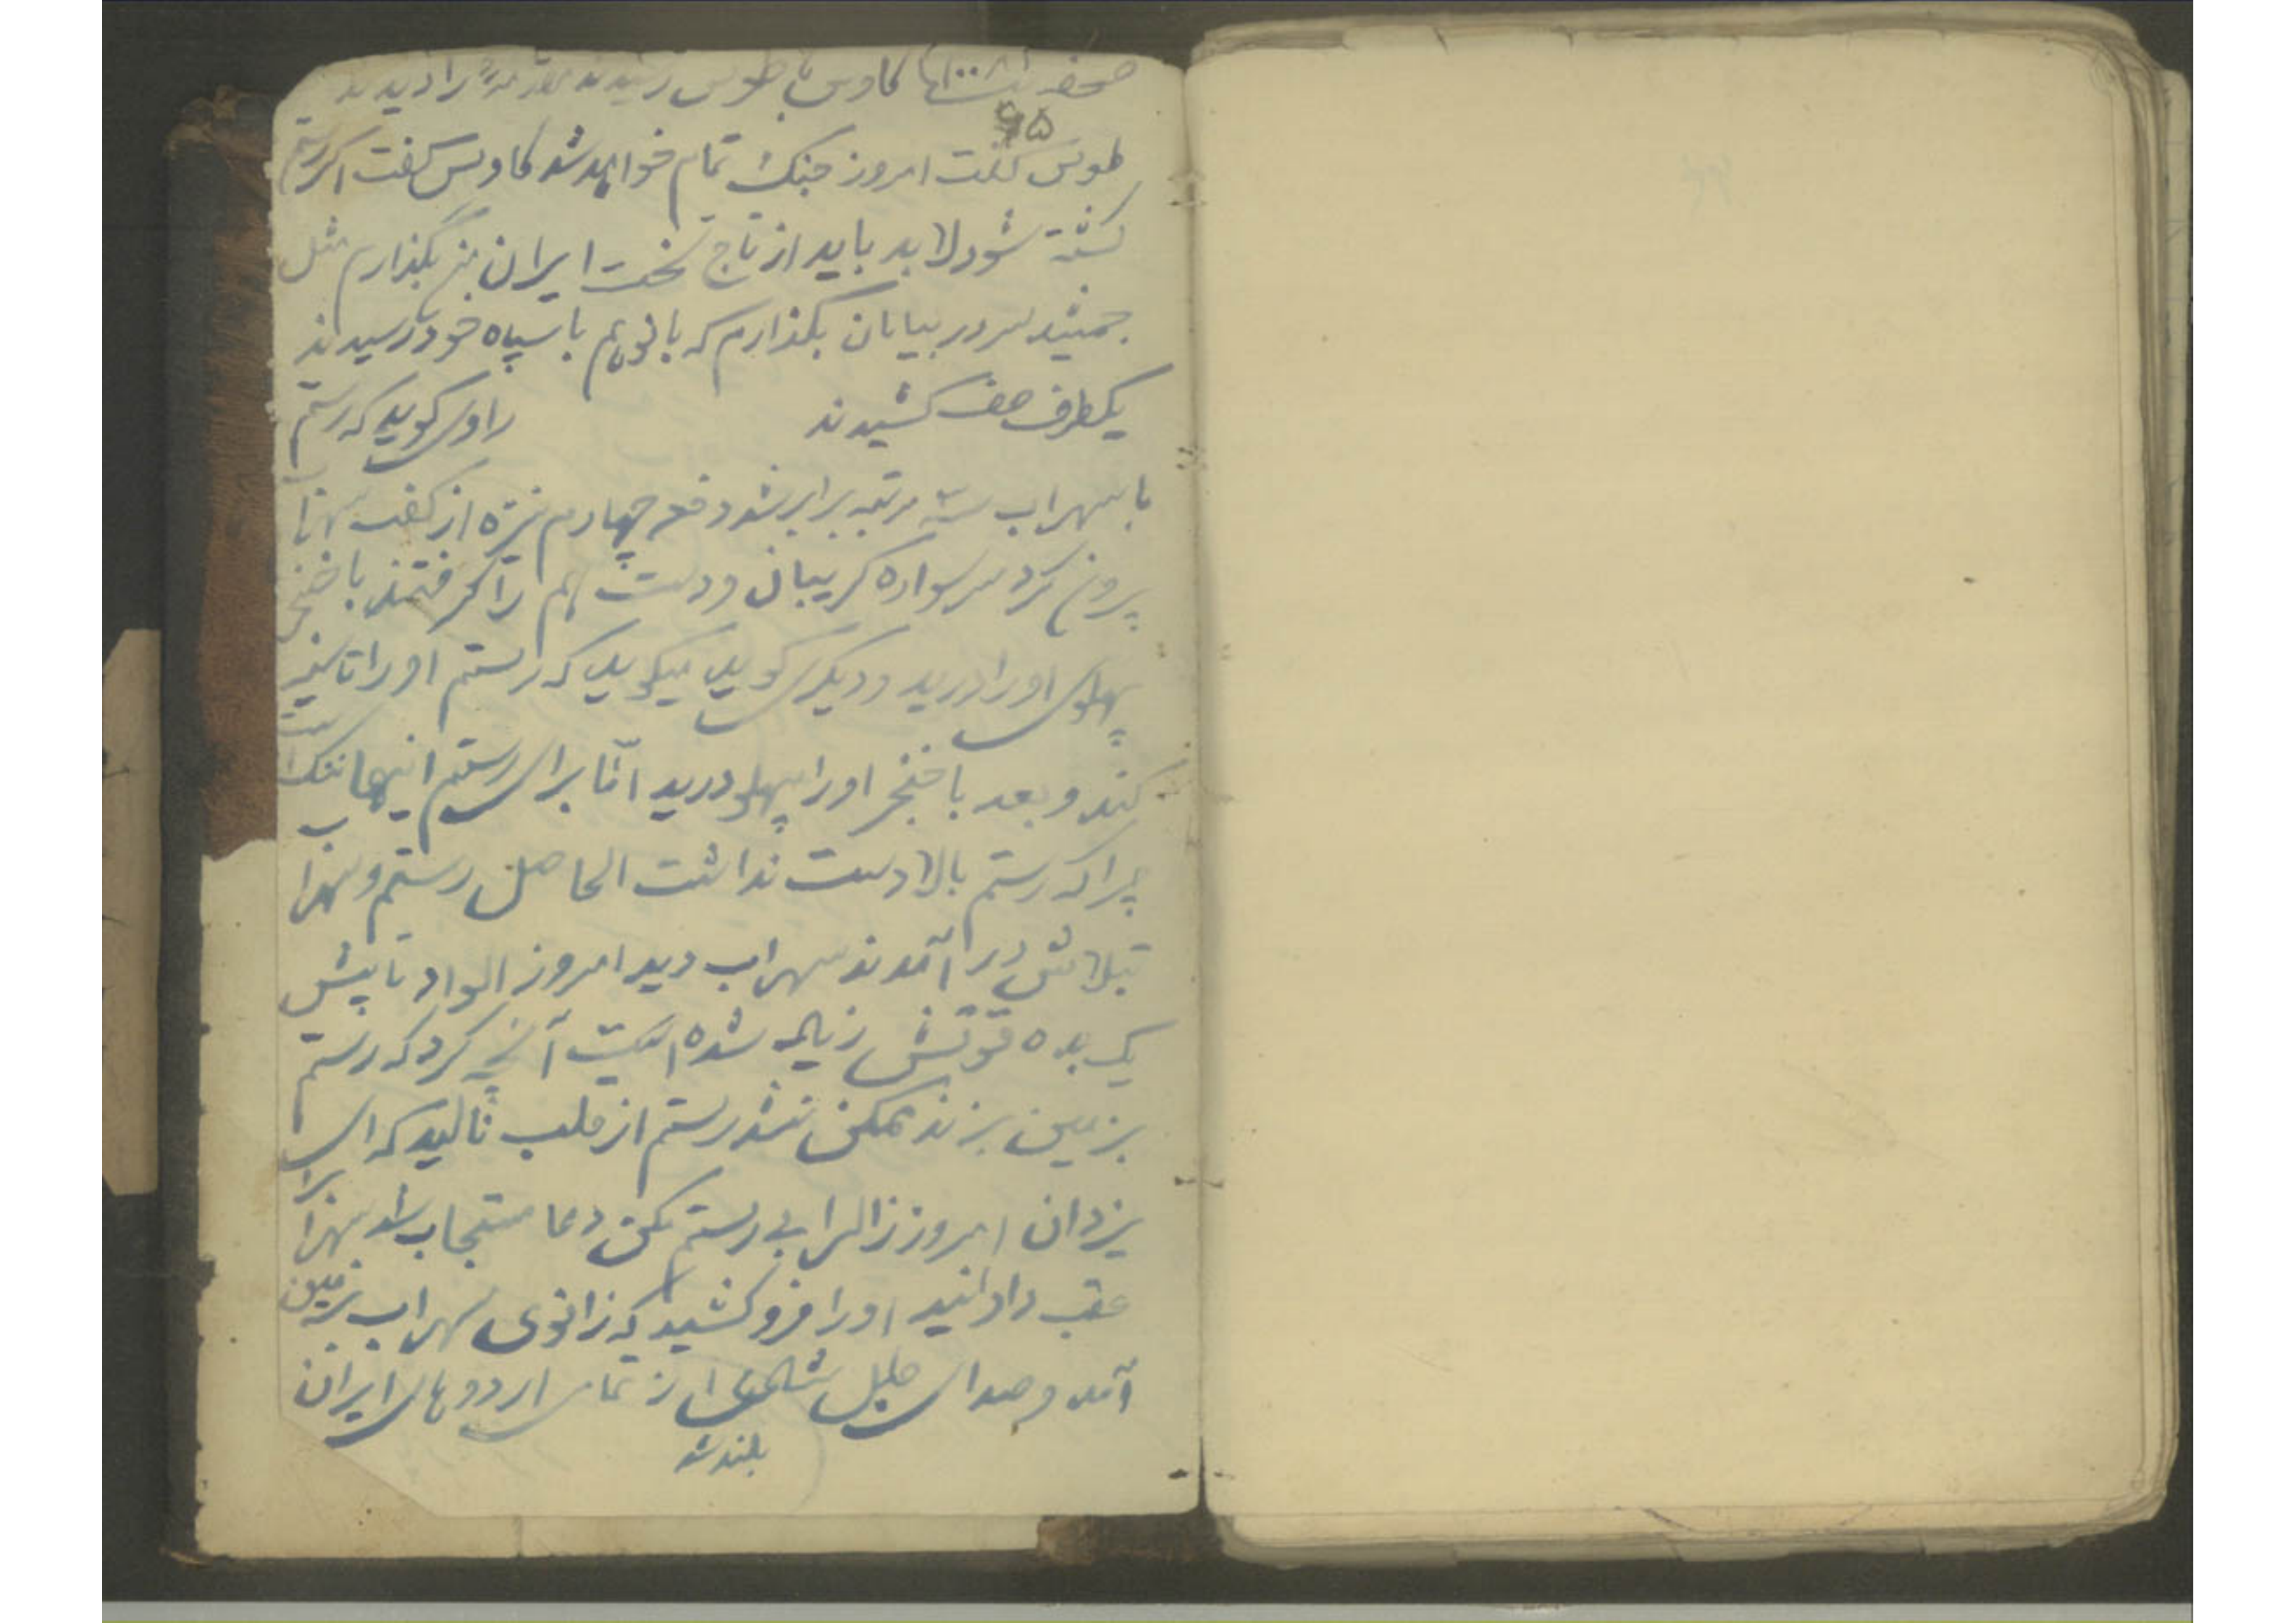 کاوس با طوس رسیدند را دیدند
۶۵
طوس گفت امروز جنگ تمام خواهد شد کاوس گفت اگر رستم
کشته شود لابد باید از تاج تخت ایران بگذارم مثل
جمشید سر در بیابان بگذارم که بانو هم با سپاه خود رسیدند
یکطرف صف کشیدند راوی گوید که رستم
با سهراب سه مرتبه برابر شد دفعه چهارم نیزه از کف سهراب
بیرون کرد سر سواره گریبان و دست هم را گرفتند با خنجر
پهلوی او را درید و دیگری گوید میگوید که رستم او را تا سینه
کند و بعد با خنجر او را پهلو درید امّا برای رستم اینها ننگ است
چرا که رستم بالادست نداشت الحاصل رستم و سهراب
تبلاش در آمدند سهراب دید امروز الواد تا پیش
یک بده قوتش زیاد شده است آنچه کرد که رستم
بزمین بزند ممکن نشد رستم از قلب نالید که ای
یزدان امروز زال را بی رستم مکن دعا مستجاب شد سهراب را
عقب دادانید او را فرو کشید که زانوی سهراب بزمین
آمد و صدای طبل از تمامی اردوهای ایران
بلند شد